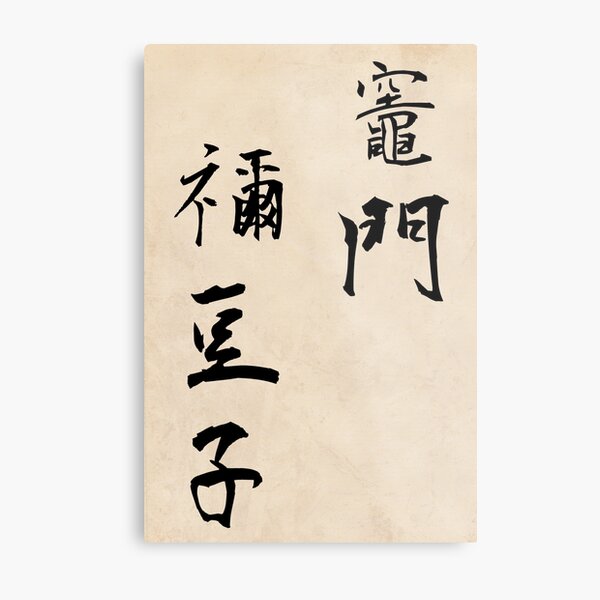 竈門
禰豆子